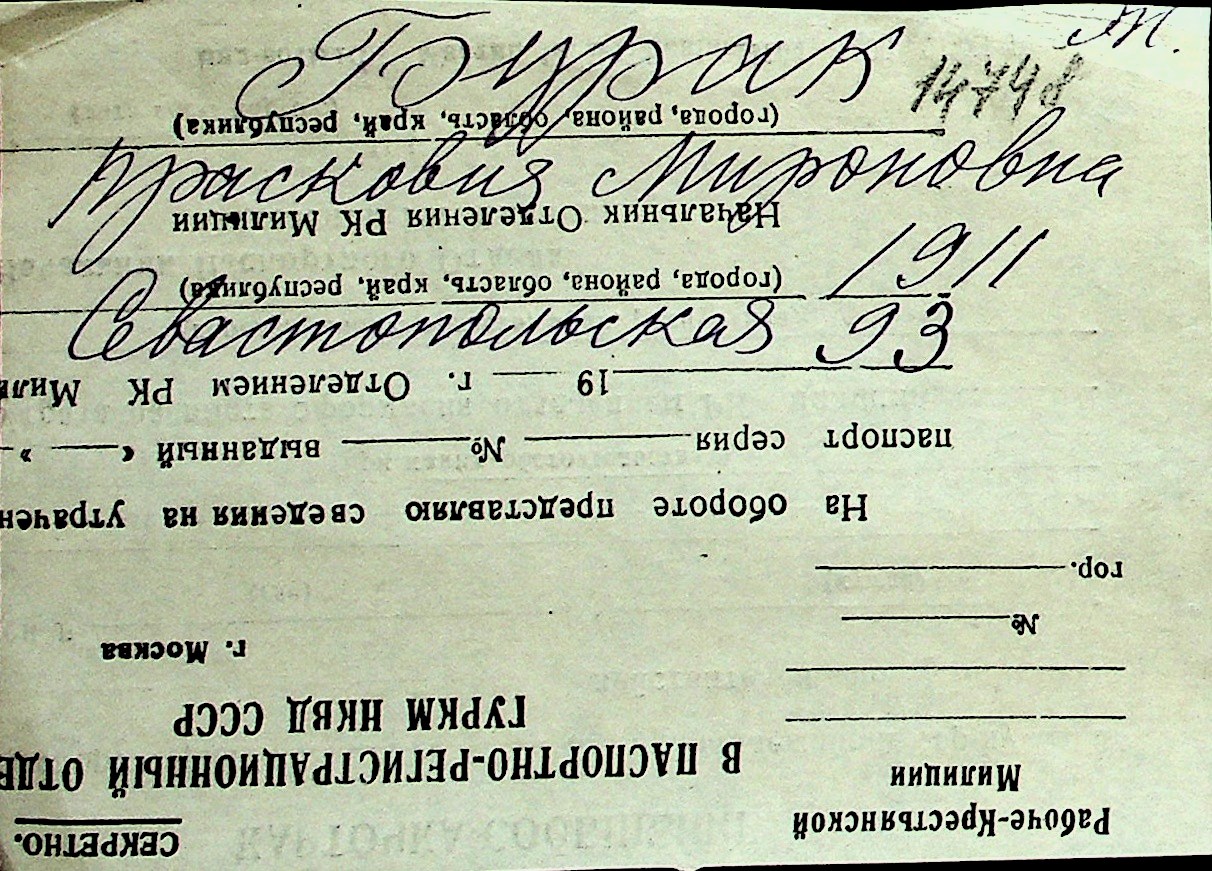 Бурак
14748
Прасковия Мироновна
1911
Севастопольская 93
СЕКРЕТНО.
Рабоче-Крестьянской
Милиции
№
гор.
В ПАСПОРТНО-РЕГИСТРАЦИОННЫЙ ОТДЕ
ГУРКМ НКВД СССР
г. Москва
На обороте представляю сведения на утрачен
паспорт серия № выданный « »
19 г. Отделением РК Мили
(города, района, область, край, республика)
Начальник Отделения РК Милиции
(города, района, область, край, республика)